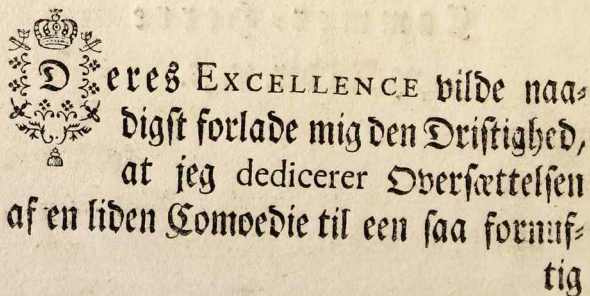 Deres EXCELLENCE vilde naa-
digst forlade mig den Dristighed,
at jeg dedicerer Oversættelsen
af en liden Comoedie til een saa fornuf-
tig